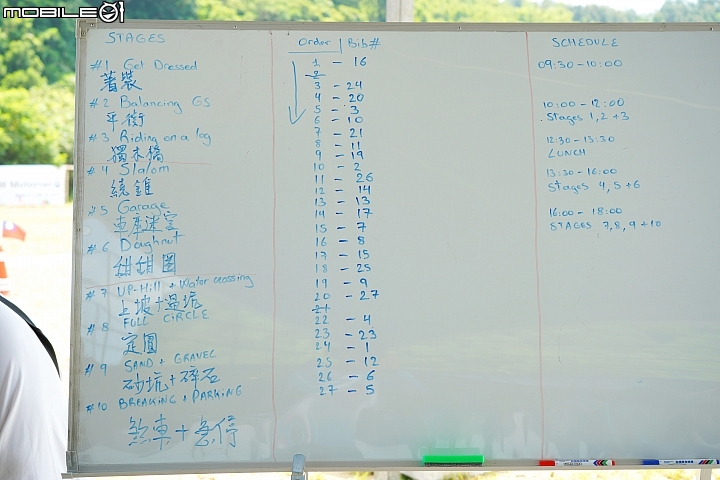 MOBILE01
STAGES
#1 Get Dressed
著裝
#2 Balancing GS
平衡
#3 Riding on a log
獨木橋
#4 Slalom
繞錐
#5 Garage
車庫迷宮
#6 Doughnut
甜甜圈
#7 UP-Hill + Water crossing
上坡+過坑
#8 FULL CIRCLE
定圓
#9 SAND + GRAVEL
砂坑+碎石
#10 BREAKING + PARKING
煞車+急停
Order | Bib#
1 - 16
2
3 - 24
4 - 20
5 - 3
6 - 10
7 - 21
8 - 11
9 - 19
10 - 2
11 - 26
12 - 14
13 - 13
14 - 17
15 - 7
16 - 8
17 - 15
18 - 25
19 - 9
20 - 27
21
22 - 4
23 - 23
24 - 1
25 - 12
26 - 6
27 - 5
SCHEDULE
09:30 - 10:00
10:00 - 12:00
Stages 1,2+3
12:30 - 13:30
LUNCH
13:30 - 16:00
Stages 4,5+6
16:00 - 18:00
STAGES 7,8,9+10